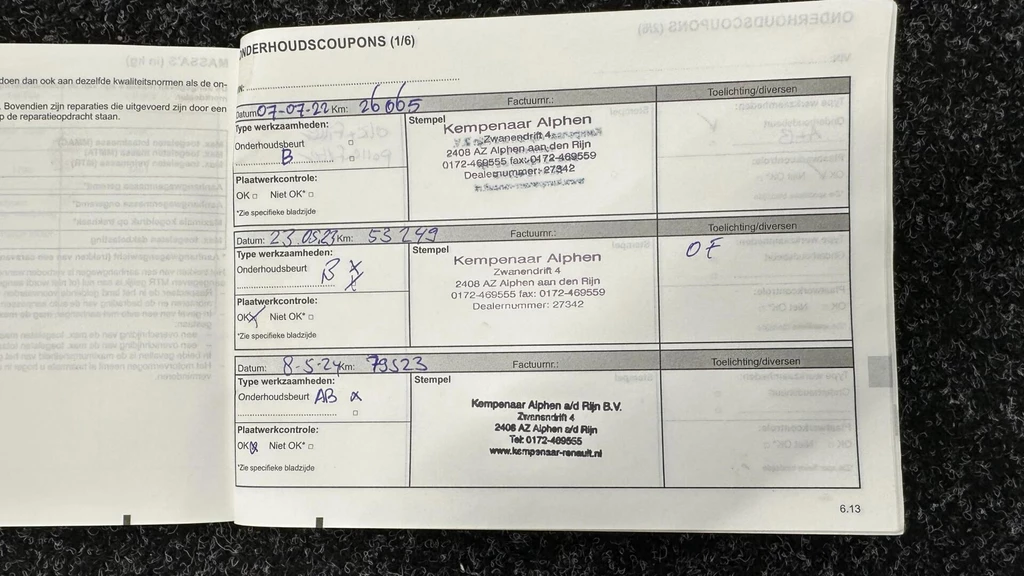 doen dan ook aan dezelfde kwaliteitsnormen als de on-
Bovendien zijn reparaties die uitgevoerd zijn door een
de reparatieopdracht staan.
NDERHOUDSCOUPONS (1/6)
Datum: 07-07-22 Km: 26665 Factuurnr.: Toelichting/diversen
Type werkzaamheden:
Onderhoudsbeurt
B
Plaatwerkcontrole:
OK □ Niet OK* □
*Zie specifieke bladzijde
Stempel
Kempenaar Alphen
Zwanendrift 4
2408 AZ Alphen aan den Rijn
0172-469555 fax: 0172-469559
Dealernummer: 27342
Datum: 23.05.23 Km: 53249 Factuurnr.: Toelichting/diversen
Type werkzaamheden:
Onderhoudsbeurt B X
X
Plaatwerkcontrole:
OK X Niet OK* □
*Zie specifieke bladzijde
Stempel
Kempenaar Alphen
Zwanendrift 4
2408 AZ Alphen aan den Rijn
0172-469555 fax: 0172-469559
Dealernummer: 27342
OF
Datum: 8-5-24 Km: 79523 Factuurnr.: Toelichting/diversen
Type werkzaamheden:
Onderhoudsbeurt AB X
Plaatwerkcontrole:
OK X Niet OK* □
*Zie specifieke bladzijde
Stempel
Kempenaar Alphen a/d Rijn B.V.
Zwanendrift 4
2408 AZ Alphen a/d Rijn
Tel: 0172-469555
www.kempenaar-renault.nl
6.13